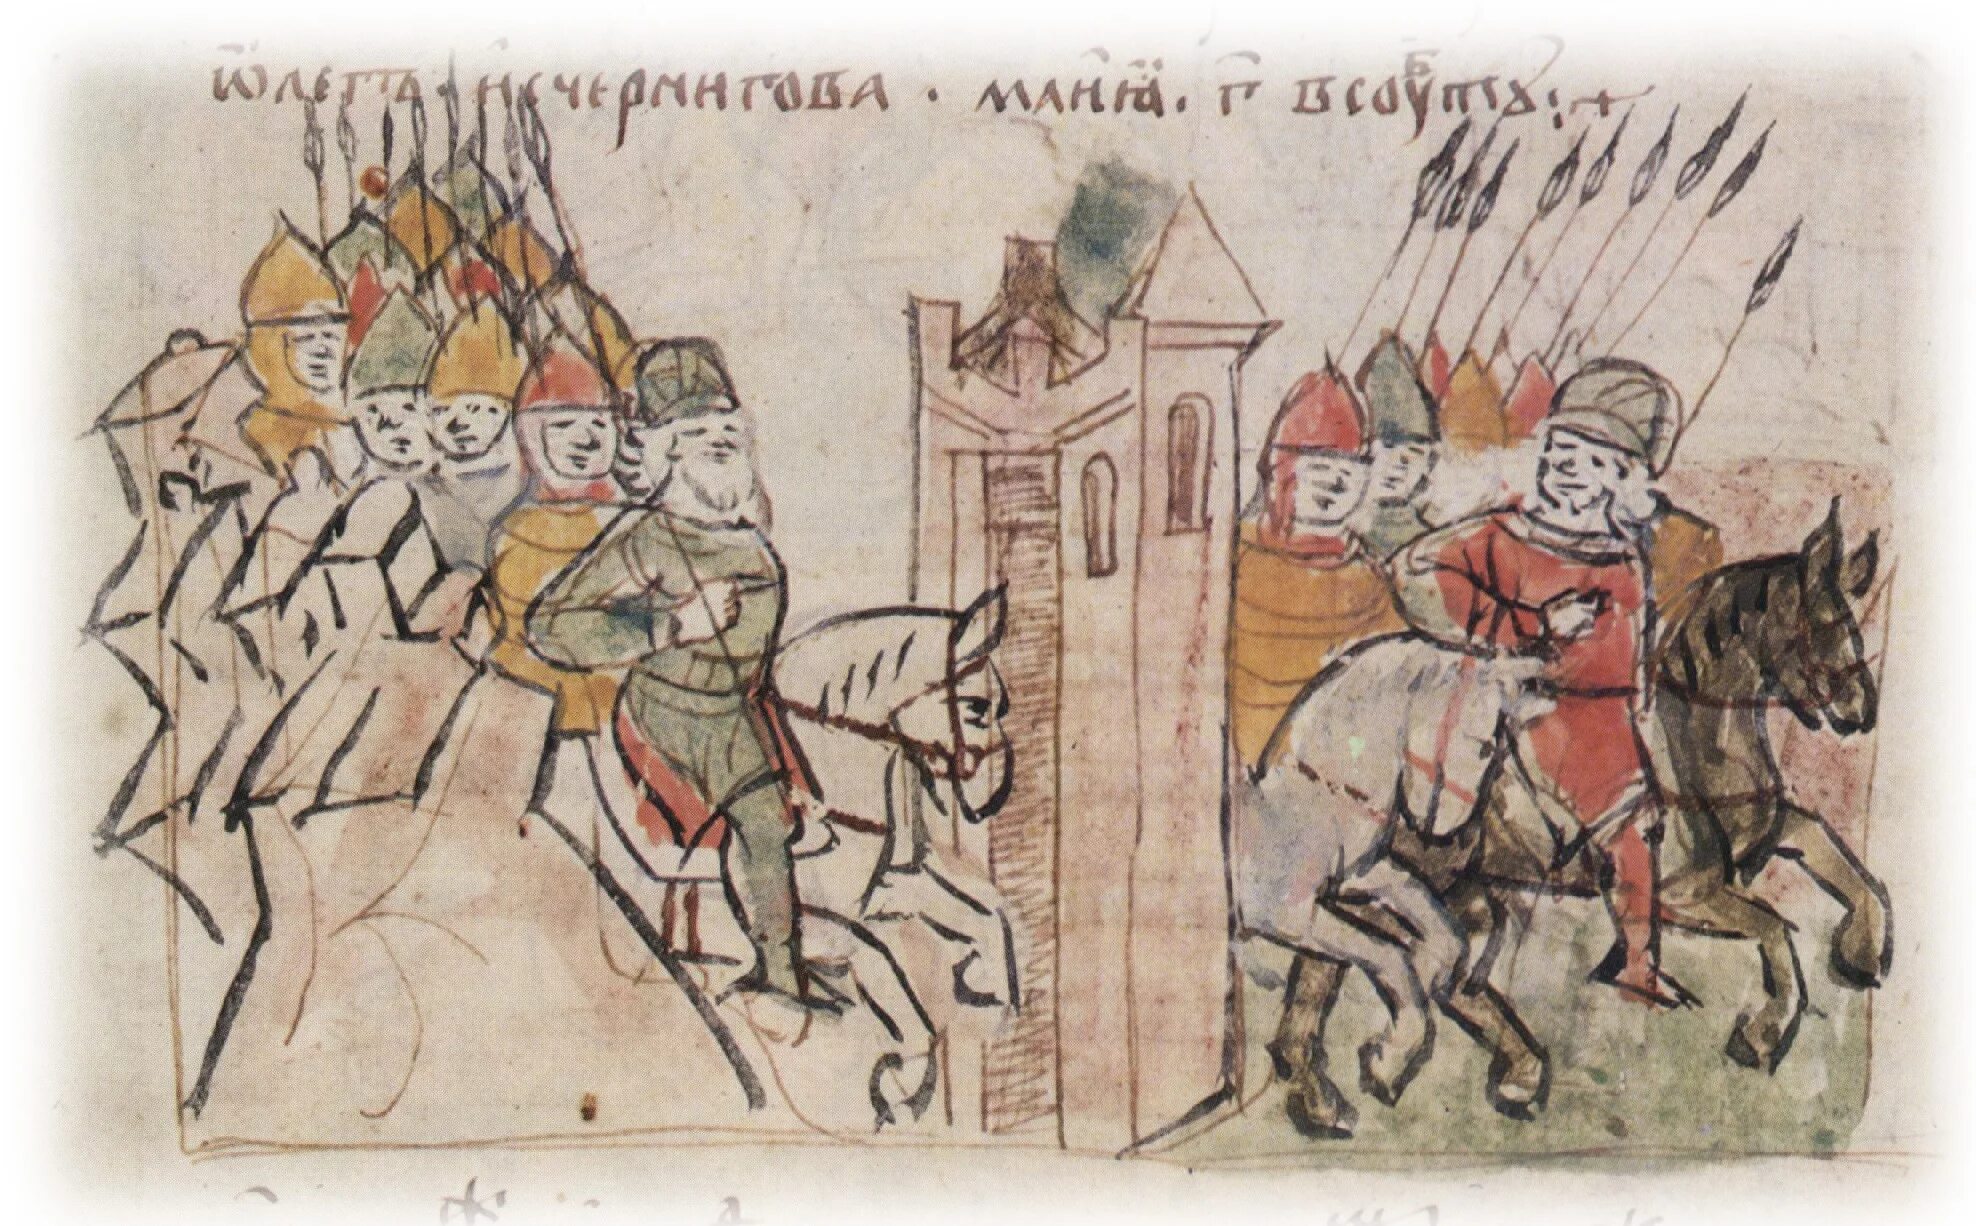 ѡлегъ · исчернигова · маиꙗ · г҃ всоуⷠтоу :+